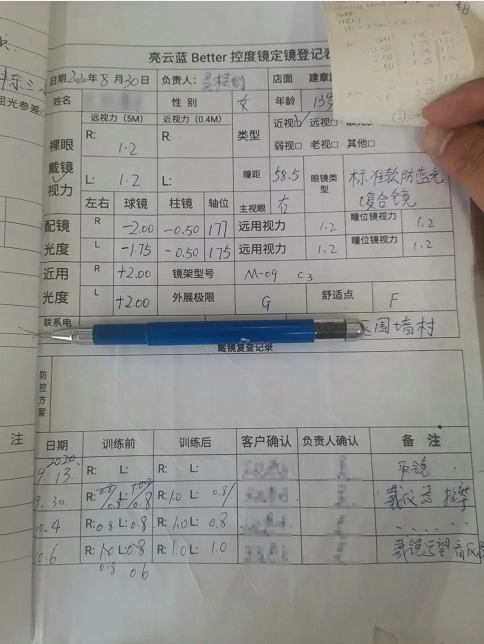 亮云蓝 Better 控度镜定镜登记表
日期2020年8月30日 负责人： 店面 建章
姓名 性别 女 年龄 13岁
远视力（5M） 近视力（0.4M） 类型 近视√ 远视□
裸眼 戴镜 视力 R: 1.2 R: 弱视□ 老视□ 其他□
L: 1.2 L: 瞳距 58.5 眼镜类型 标准款防蓝光复合镜
左右 球镜 柱镜 轴位 主视眼 右
配镜 R -2.00 -0.50 177 远用视力 1.2 瞳位镜视力 1.2
光度 L -1.75 -0.50 175 远用视力 1.2 瞳位镜视力 1.2
近用 R +2.00 镜架型号 M-09 C3
光度 L +2.00 外展极限 G 舒适点 F
联系电 围墙村
戴镜复查记录
防控方案
注
日期 训练前 训练后 客户确认 负责人确认 备注
2020
9.13 R: L: R: L: 取镜
9.30 R: L: R:1.0 L: 0.8
10.4 R:0.8 L:0.8 R:1.0 L: 0.8
10.6 R:1.0 L:0.8 R:1.0 L: 1.0
0.8 0.6